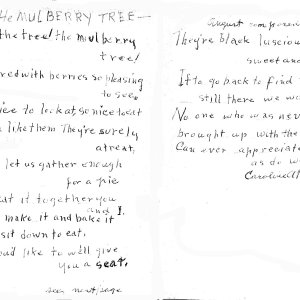 HE MULBERRY TREE—
the tree! the mulberry
tree!
red with berries so pleasing
to see.
nice to look at, so nice to eat
like them They're surely
a treat,
let us gather enough
for a pie
eat it together you
and I.
make it and bake it
sit down to eat.
like to we'll give
you a seat.
see next page
August
They're black luscious
sweet and
If to go back to find
still there we
No one who was nev
brought up with the
Can ever appreciate
as do w